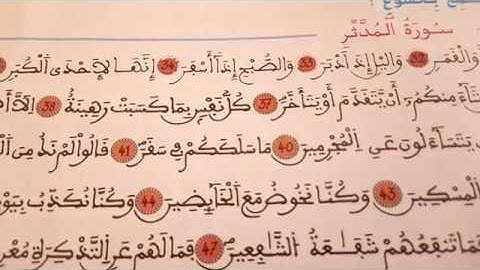 بخشوع :
سُورَةُ الْمُدَّثِّر
وَالْقَمَرِ 32 وَالَّيْلِ إِذَ اَدْبَرَ 33 وَالصُّبْحِ إِذَا أَسْفَرَ 34 إِنَّهَا لَإِحْدَى الْكُبَرِ
شَآءَ مِنكُمُ أَنْ يَّتَقَدَّمَ أَوْ يَتَأَخَّرَ 37 كُلُّ نَفْسٍ بِمَا كَسَبَتْ رَهِينَةٌ 38 إِلَّا
يَتَسَآءَلُونَ عَنِ الْمُجْرِمِينَ 40 مَا سَلَكَكُمْ فِي سَقَرَ 41 قَالُوا لَمْ نَكُ مِنَ
الْمِسْكِينَ 43 وَكُنَّا نَخُوضُ مَعَ الْخَآئِضِينَ 44 وَكُنَّا نُكَذِّبُ بِيَوْ
فَمَا تَنفَعُهُمْ شَفَٰعَةُ الشَّٰفِعِينَ 47 فَمَا لَهُمْ عَنِ التَّذْكِرَةِ مُعْرِ